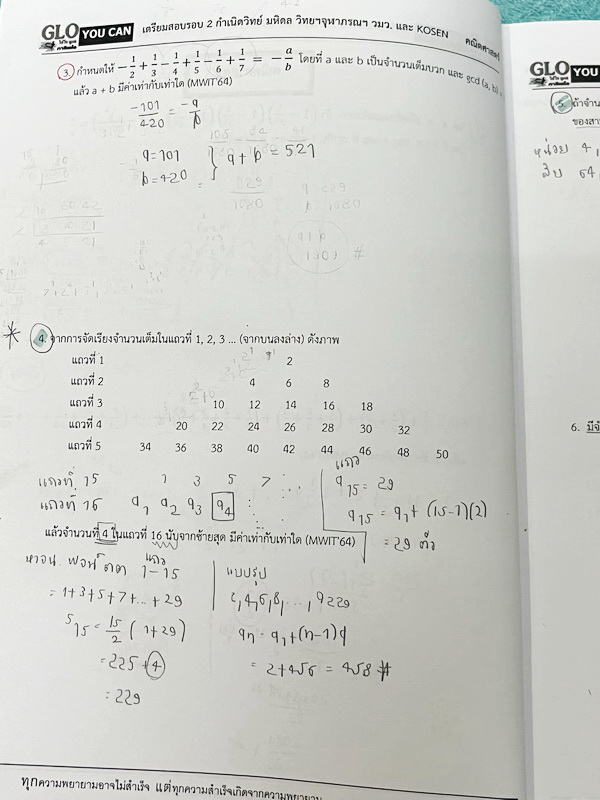 GLO YOU CAN เตรียมสอบรอบ 2 กำเนิดวิทย์ มหิดล วิทยฯจุฬาภรณฯ วมว. และ KOSEN คณิตศาสตร์
3. กำหนดให้ -1/2 + 1/3 - 1/4 + 1/5 - 1/6 + 1/7 = -a/b โดยที่ a และ b เป็นจำนวนเต็มบวก และ gcd (a, b)
แล้ว a + b มีค่าเท่ากับเท่าใด (MWIT'64)
-101/420 = -a/b
a = 101
b = 420
a + b = 521
4. จากการจัดเรียงจำนวนเต็มในแถวที่ 1, 2, 3 ... (จากบนลงล่าง) ดังภาพ
แถวที่ 1 2
แถวที่ 2 4 6 8
แถวที่ 3 10 12 14 16 18
แถวที่ 4 20 22 24 26 28 30 32
แถวที่ 5 34 36 38 40 42 44 46 48 50
แถวที่ 15 1 3 5 7 ...
แถวที่ 16 a1 a2 a3 a4
แถว
a15 = 29
a15 = a1 + (15-1)(2)
= 29 ตัว
แล้วจำนวนที่ 4 ในแถวที่ 16 นับจากซ้ายสุด มีค่าเท่ากับเท่าใด (MWIT'64)
แถว 1-15
= 1+3+5+7+...+29
S15 = 15/2 (1+29)
= 225+4
= 229
แบบรูป
2,4,6,8,...,a229
an = a1+(n-1)d
= 2+456 = 458 #
ทุกความพยายามอาจไม่สำเร็จ แต่ทุกความสำเร็จเกิดจากความพยายาม
GLO YOU
5. ถ้าจำน
ของสา
หน่วย 4,
สิบ 64,
6. มีจำ